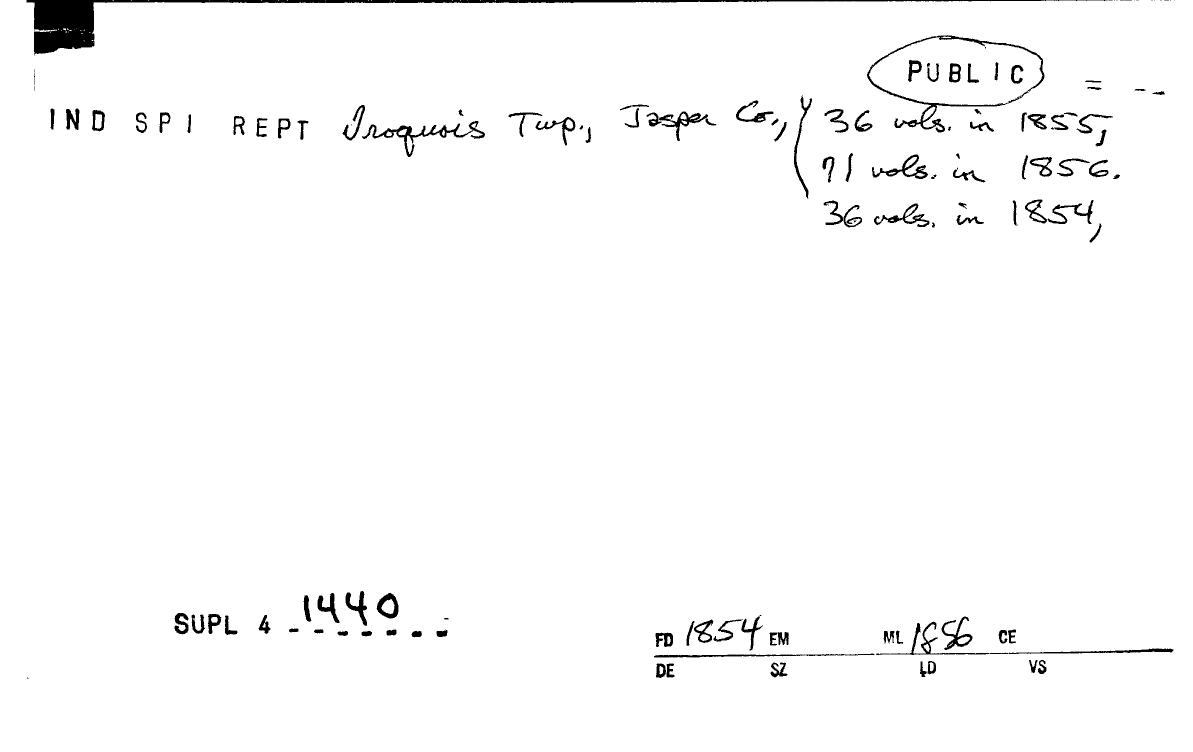 PUBLIC = --
IND SPI REPT Iroquois Twp., Jasper Co., 36 vols. in 1855,
71 vols. in 1856.
36 vols. in 1854,
SUPL 4 1440
FD 1854 EM ML 1856 CE
DE SZ LD VS